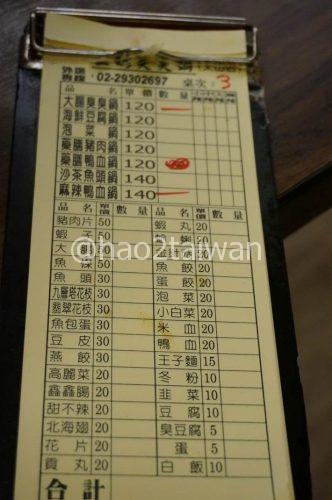 外送專線:02-29302697 桌次:3
品名 單價 數量
大腸臭臭鍋 120
海鮮豆腐鍋 120
泡菜鍋 120
藥膳豬肉鍋 120
藥膳鴨血鍋 120
沙茶魚頭鍋 140
麻辣鴨血鍋 140
品名 單價 數量 品名 單價 數量
豬肉片 50 蝦丸 20
蝦子 50 20
大腸 50 金針菇 20
魚辣 50 魚餃 20
魚頭 30 蛋餃 20
九層塔花枝 30 泡菜 20
翡翠花枝 30 小白菜 20
魚包蛋 30 米血 20
豆皮 30 鴨血 20
燕餃 30 王子麵 15
高麗菜 20 冬粉 10
鑫鑫腸 20 韭菜 10
甜不辣 20 豆腐 10
北海翅 20 臭豆腐 5
花片 20 蛋 5
貢丸 20 白飯 10
合計
@hao2taiwan